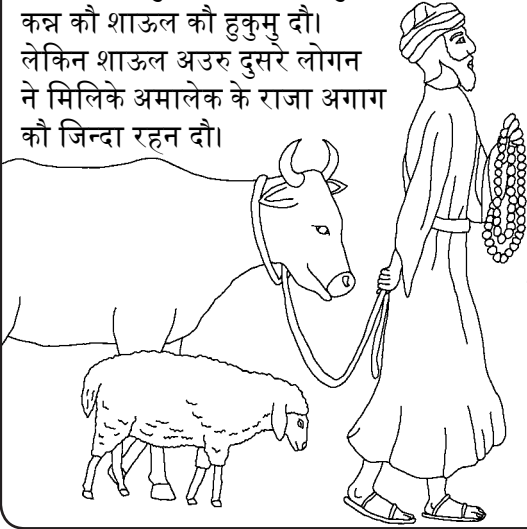 कन्न कौ शाऊल कौ हुकुमु दौ।
लेकिन शाऊल अउरु दुसरे लोगन
ने मिलिके अमालेक के राजा अगाग
कौ जिन्दा रहन दौ।